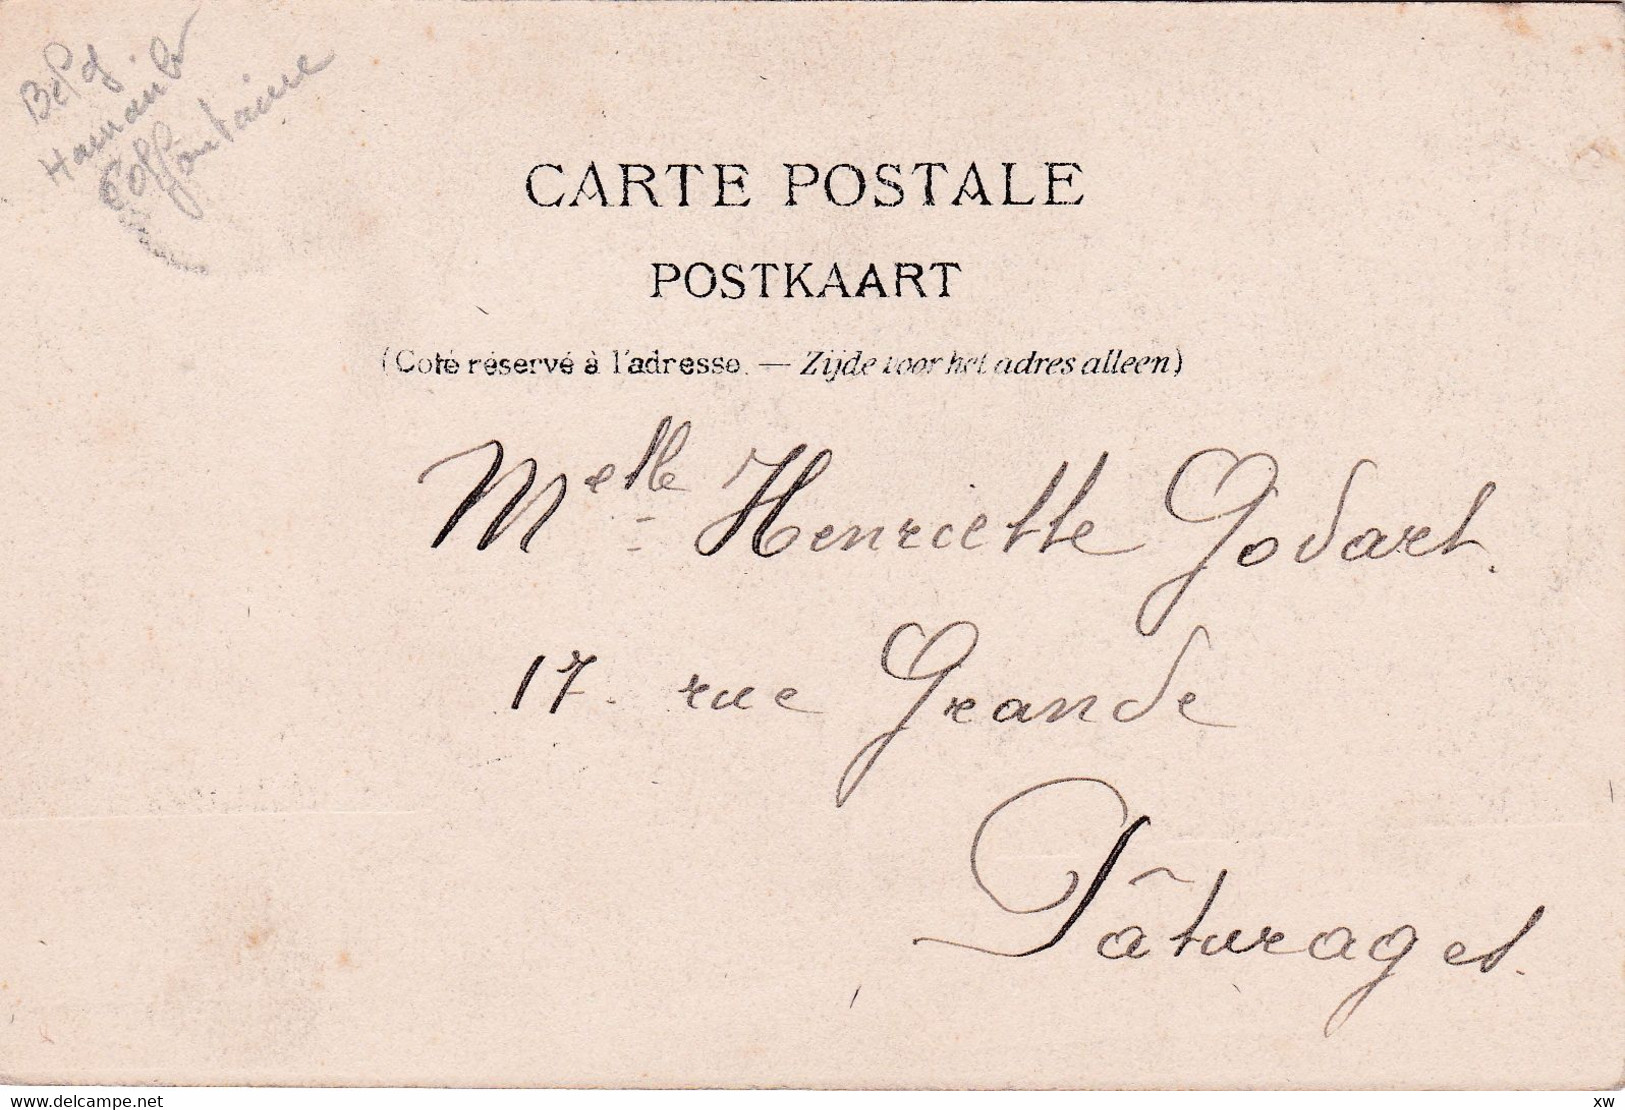 Belg.
Hainaut
Colfontaine
CARTE POSTALE
POSTKAART
(Coté réservé à l'adresse. — Zijde voor het adres alleen)
Melle Henriette Godart.
17. rue Grande
Pâturages.
www.delcampe.net
xw